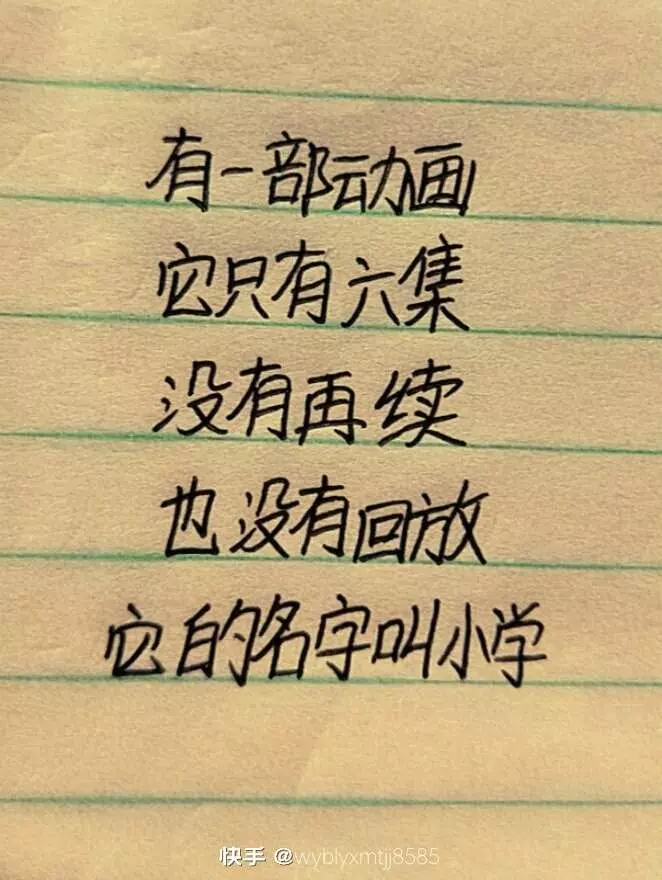 有一部动画
它只有六集
没有再续
也没有回放
它的名字叫小学
快手 @wyblyxmtjj8585